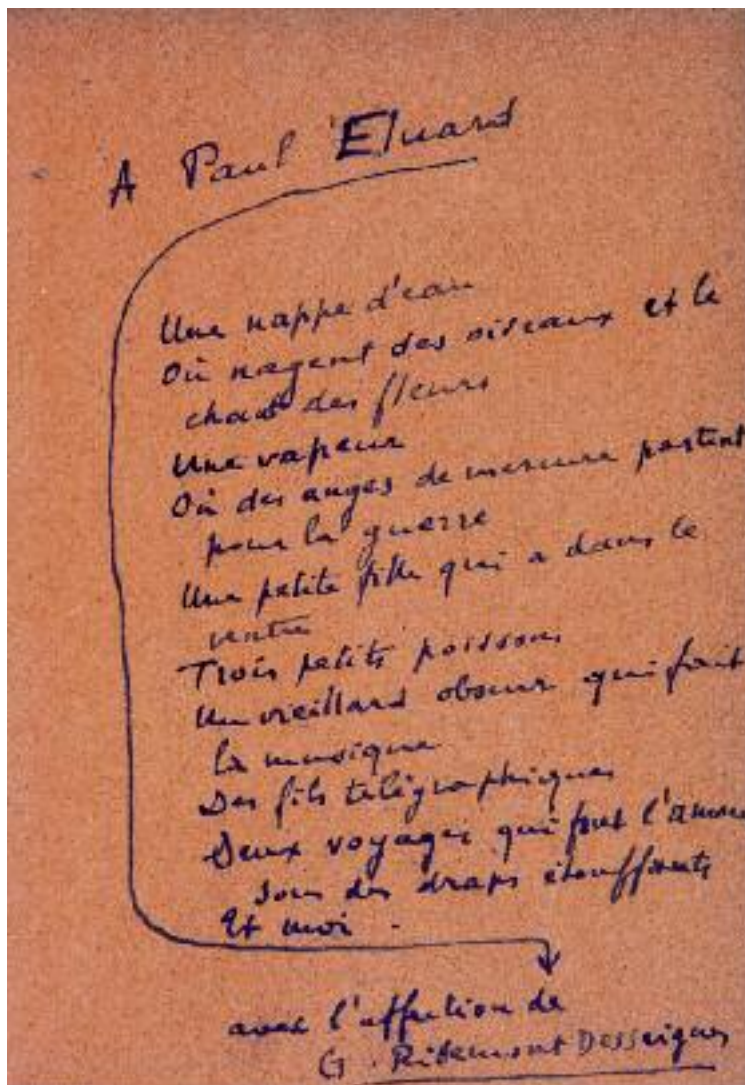 A Paul Eluard
Une nappe d'eau
Où nagent des oiseaux et le
chant des fleurs
Une vapeur
Où des anges de mercure partent
pour la guerre
Une petite fille qui a dans le
ventre
Trois petits poissons
Un vieillard obscur qui fait
la musique
Des fils télégraphiques
Deux voyages qui font l'amour
sous des draps étouffants
Et moi.
avec l'affection de
G. Ribemont Dessaignes